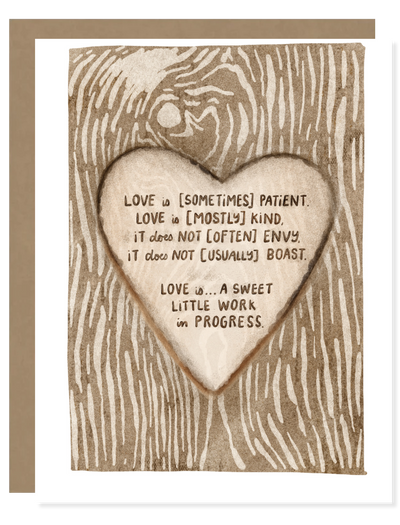 LOVE is [SOMETIMES] PATIENT.
LOVE is [MOSTLY] KIND.
iT does NOT [OFTEN] ENVY.
iT does NOT [USUALLY] BOAST.
LOVE is... A SWEET
LiTTLE WORK
in PROGRESS.